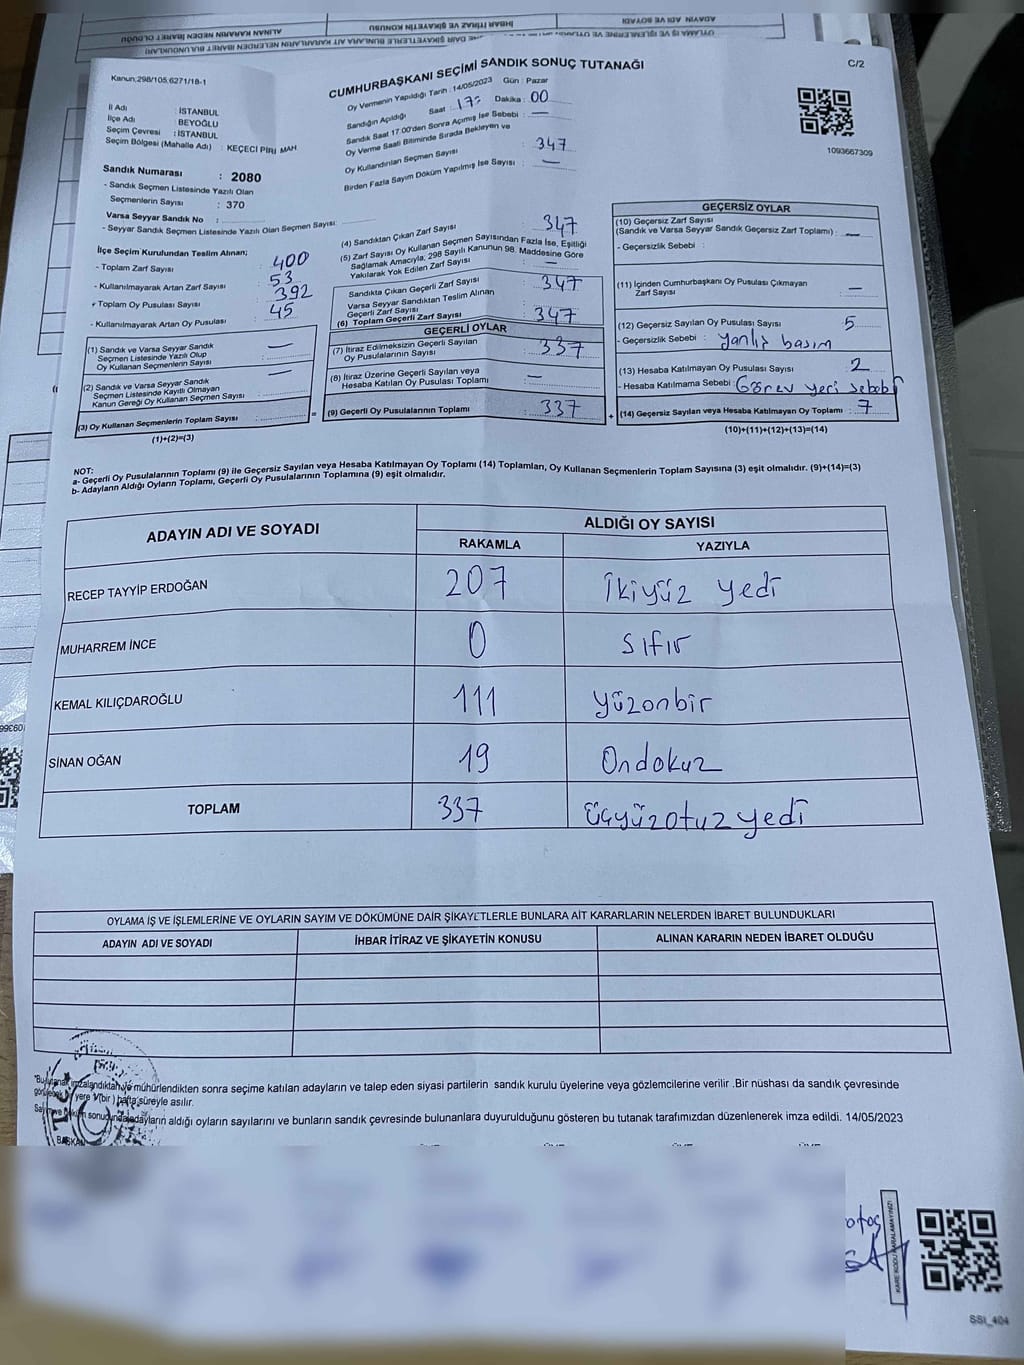 ADAYIN ADI VE SOYADI
İHBAR İTİRAZ VE ŞİKAYETİN KONUSU
ALINAN KARARIN NEDEN İBARET OLDUĞU
Kanun;298/105;6271/18-1
CUMHURBAŞKANI SEÇİMİ SANDIK SONUÇ TUTANAĞI
C/2
Oy Vermenin Yapıldığı Tarih : 14/05/2023 Gün : Pazar
Sandığın Açıldığı Saat : 17 Dakika : 00
Sandık Saat 17.00'den Sonra Açımış İse Sebebi : —
Oy Verme Saati Bitiminde Sırada Bekleyen ve
Oy Kullandırılan Seçmen Sayısı : 347
Birden Fazla Sayım Döküm Yapılmış İse Sayısı : —
1093667309
İl Adı : İSTANBUL
İlçe Adı : BEYOĞLU
Seçim Çevresi : İSTANBUL
Seçim Bölgesi (Mahalle Adı) : KEÇECİ PİRİ MAH
Sandık Numarası : 2080
- Sandık Seçmen Listesinde Yazılı Olan
Seçmenlerin Sayısı : 370
Varsa Seyyar Sandık No :
- Seyyar Sandık Seçmen Listesinde Yazılı Olan Seçmen Sayısı:
İlçe Seçim Kurulundan Teslim Alınan;
- Toplam Zarf Sayısı : 400
- Kullanılmayarak Artan Zarf Sayısı : 53
+ Toplam Oy Pusulası Sayısı : 392
- Kullanılmayarak Artan Oy Pusulası : 45
(1) Sandık ve Varsa Seyyar Sandık
Seçmen Listesinde Yazılı Olup
Oy Kullanan Seçmenlerin Sayısı : —
(2) Sandık ve Varsa Seyyar Sandık
Seçmen Listesinde Kayıtlı Olmayan
Kanun Gereği Oy Kullanan Seçmen Sayısı : —
(3) Oy Kullanan Seçmenlerin Toplam Sayısı :
(1)+(2)=(3)
(4) Sandıktan Çıkan Zarf Sayısı : 347
(5) Zarf Sayısı Oy Kullanan Seçmen Sayısından Fazla İse, Eşitliği
Sağlamak Amacıyla, 298 Sayılı Kanunun 98. Maddesine Göre
Yakılarak Yok Edilen Zarf Sayısı : —
Sandıkta Çıkan Geçerli Zarf Sayısı : 347
Varsa Seyyar Sandıktan Teslim Alınan
Geçerli Zarf Sayısı
(6) Toplam Geçerli Zarf Sayısı : 347
GEÇERLİ OYLAR
(7) İtiraz Edilmeksizin Geçerli Sayılan
Oy Pusulalarının Sayısı : 337
(8) İtiraz Üzerine Geçerli Sayılan veya
Hesaba Katılan Oy Pusulası Toplamı : —
= (9) Geçerli Oy Pusulalarının Toplamı : 337
GEÇERSİZ OYLAR
(10) Geçersiz Zarf Sayısı
(Sandık ve Varsa Seyyar Sandık Geçersiz Zarf Toplamı) : —
- Geçersizlik Sebebi :
(11) İçinden Cumhurbaşkanı Oy Pusulası Çıkmayan
Zarf Sayısı : —
(12) Geçersiz Sayılan Oy Pusulası Sayısı : 5
- Geçersizlik Sebebi : yanlış basım
(13) Hesaba Katılmayan Oy Pusulası Sayısı : 2
- Hesaba Katılmama Sebebi : Görev yeri sebebi
+ (14) Geçersiz Sayılan veya Hesaba Katılmayan Oy Toplamı : 7
(10)+(11)+(12)+(13)=(14)
NOT:
a- Geçerli Oy Pusulalarının Toplamı (9) ile Geçersiz Sayılan veya Hesaba Katılmayan Oy Toplamı (14) Toplamları, Oy Kullanan Seçmenlerin Toplam Sayısına (3) eşit olmalıdır. (9)+(14)=(3)
b- Adayların Aldığı Oyların Toplamı, Geçerli Oy Pusulalarının Toplamına (9) eşit olmalıdır.
ADAYIN ADI VE SOYADI
ALDIĞI OY SAYISI
RAKAMLA YAZIYLA
RECEP TAYYİP ERDOĞAN 207 İkiyüz yedi
MUHARREM İNCE 0 Sıfır
KEMAL KILIÇDAROĞLU 111 Yüzonbir
SİNAN OĞAN 19 Ondokuz
TOPLAM 337 Üçyüzotuzyedi
OYLAMA İŞ VE İŞLEMLERİNE VE OYLARIN SAYIM VE DÖKÜMÜNE DAİR ŞİKAYETLERLE BUNLARA AİT KARARLARIN NELERDEN İBARET BULUNDUKLARI
ADAYIN ADI VE SOYADI İHBAR İTİRAZ VE ŞİKAYETİN KONUSU ALINAN KARARIN NEDEN İBARET OLDUĞU
mühürlendikten sonra seçime katılan adayların ve talep eden siyasi partilerin sandık kurulu üyelerine veya gözlemcilerine verilir .Bir nüshası da sandık çevresinde
yere 1(bir) hafta süreyle asılır.
adayların aldığı oyların sayılarını ve bunların sandık çevresinde bulunanlara duyurulduğunu gösteren bu tutanak tarafımızdan düzenlenerek imza edildi. 14/05/2023
BAŞKAN
KARE KODU KARALAMAYINIZ!
SSI_404